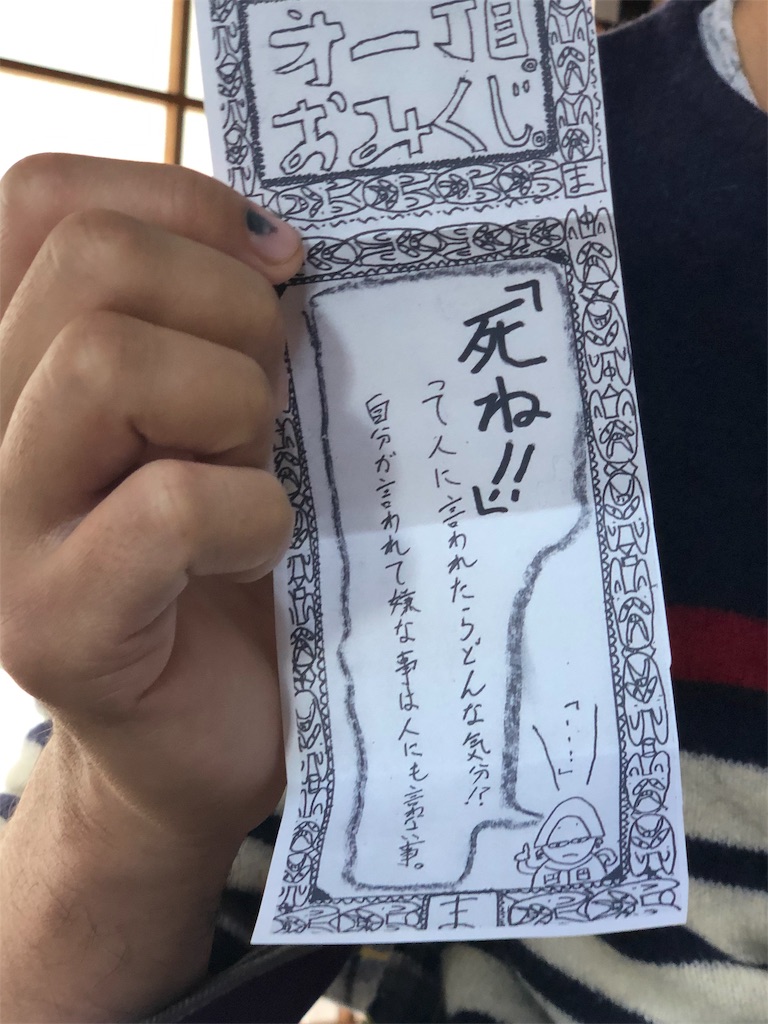 おみくじ。
「死ね!!」
って人に言われたらどんな気分!?
自分が言われて嫌な事は人にも言う事。
「・・・・」